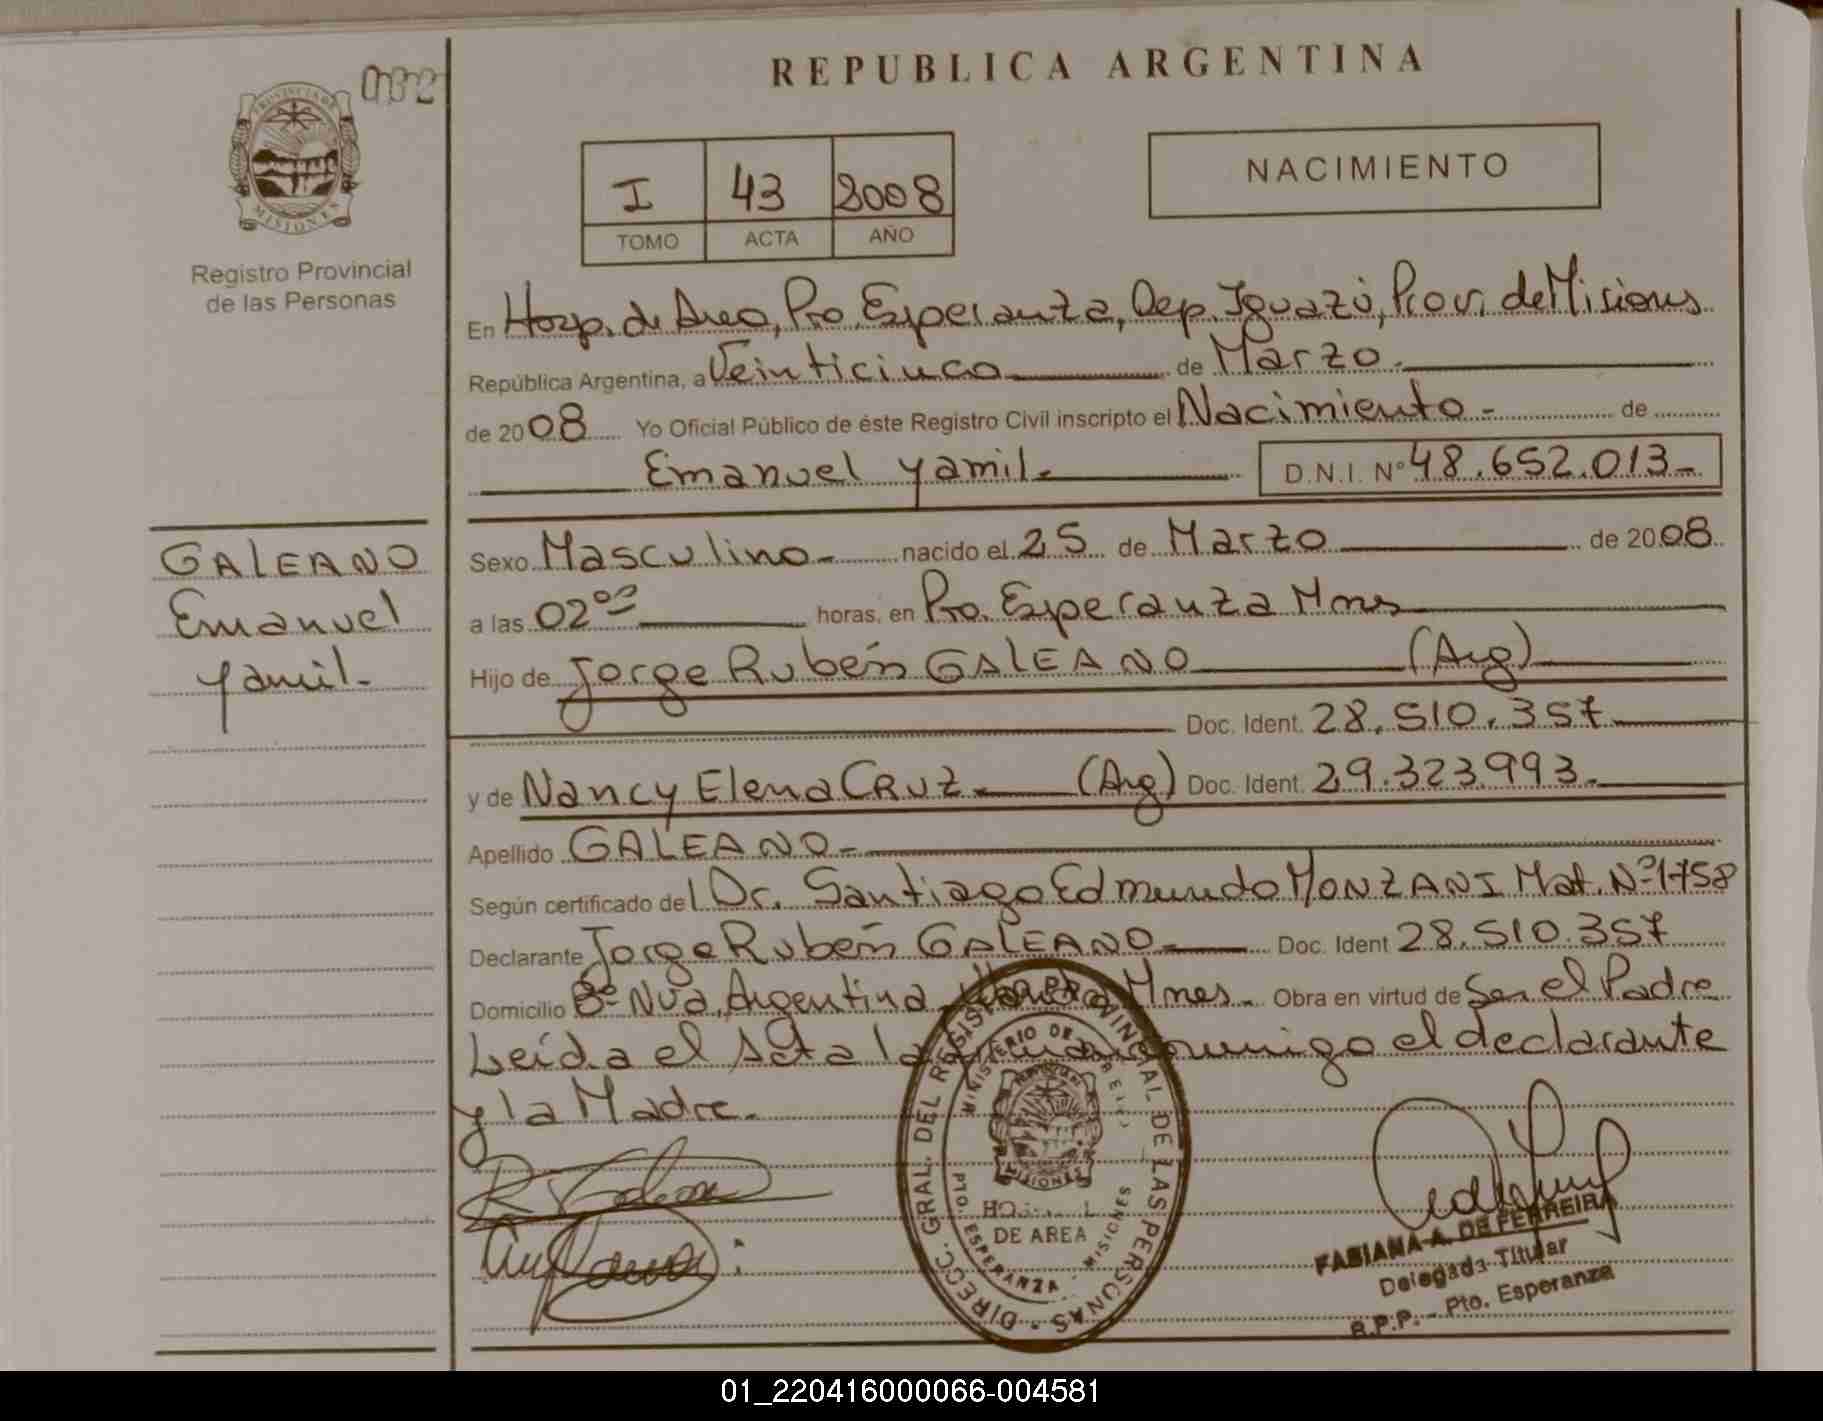 032
REPUBLICA ARGENTINA
PROVINCIA DE
MISIONES
Registro Provincial
de las Personas
I 43 2008
TOMO ACTA AÑO
NACIMIENTO
En Hosp. de Area, Pto. Esperanza, Dep. Iguazú, Prov. de Misiones
República Argentina, a Veinticinco de Marzo.
de 2008 Yo Oficial Público de éste Registro Civil inscripto el Nacimiento - de
Emanuel yamil. D.N.I. Nº 48.652.013-
GALEANO
Emanuel
yamil.
Sexo Masculino- nacido el 25 de Marzo de 2008
a las 02⁰⁰ horas, en Pto. Esperanza Mnes
Hijo de Jorge Rubén GALEANO (Arg)
Doc. Ident. 28.510.357
y de Nancy Elena CRUZ. (Arg) Doc. Ident. 29.323.993.
Apellido GALEANO-
Según certificado del Dr. Santiago Edmundo MONZANI Mat. Nº 1758
Declarante Jorge Rubén GALEANO- Doc. Ident 28.510.357
Domicilio Bº Nva. Argentina, Wanda Mnes. Obra en virtud de Ser el Padre
Leída el Acta la conmigo el declarante
y la Madre.
DIRECC. GRAL. DEL REGISTRO PROVINCIAL DE LAS PERSONAS
MINISTERIO DE
MISIONES
DE AREA
PTO. ESPERANZA - MISIONES
FABIANA A. DE FERREIRA
Delegada Titular
R.P.P. - Pto. Esperanza
01_220416000066-004581